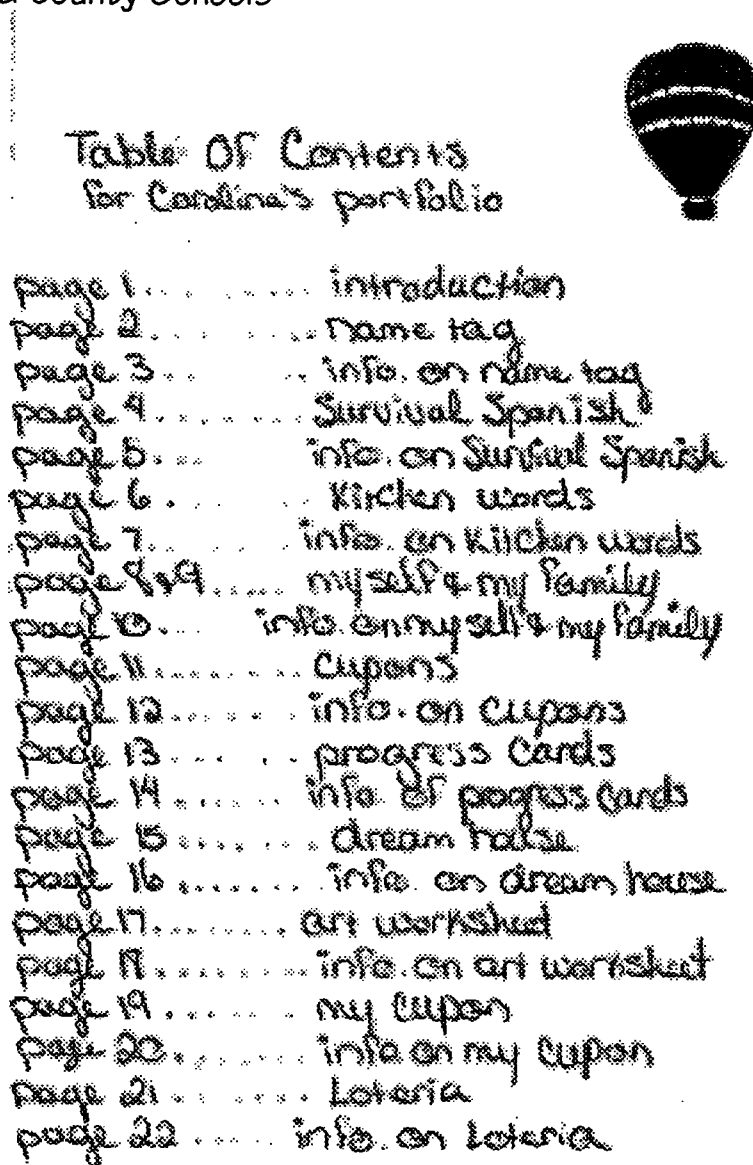 County Schools
Table Of Contents
for Carolina's portfolio
page 1........ introduction
page 2........ name tag
page 3.... info. on name tag
page 4........ Survival Spanish
page 5... info. on Survival Spanish
page 6.... Kitchen words
page 7..... info. on Kitchen words
page 8&9..... myself & my family
page 10... info. on myself & my family
page 11........ cupons
page 12........ info. on cupons
page 13..... progress Cards
page 14....... info of progress Cards
page 15........ dream house
page 16........ info. on dream house
page 17........ art worksheet
page 18........ info. on art worksheet
page 19...... my cupon
page 20....... info on my cupon
page 21....... Loteria
page 22..... info. on Loteria